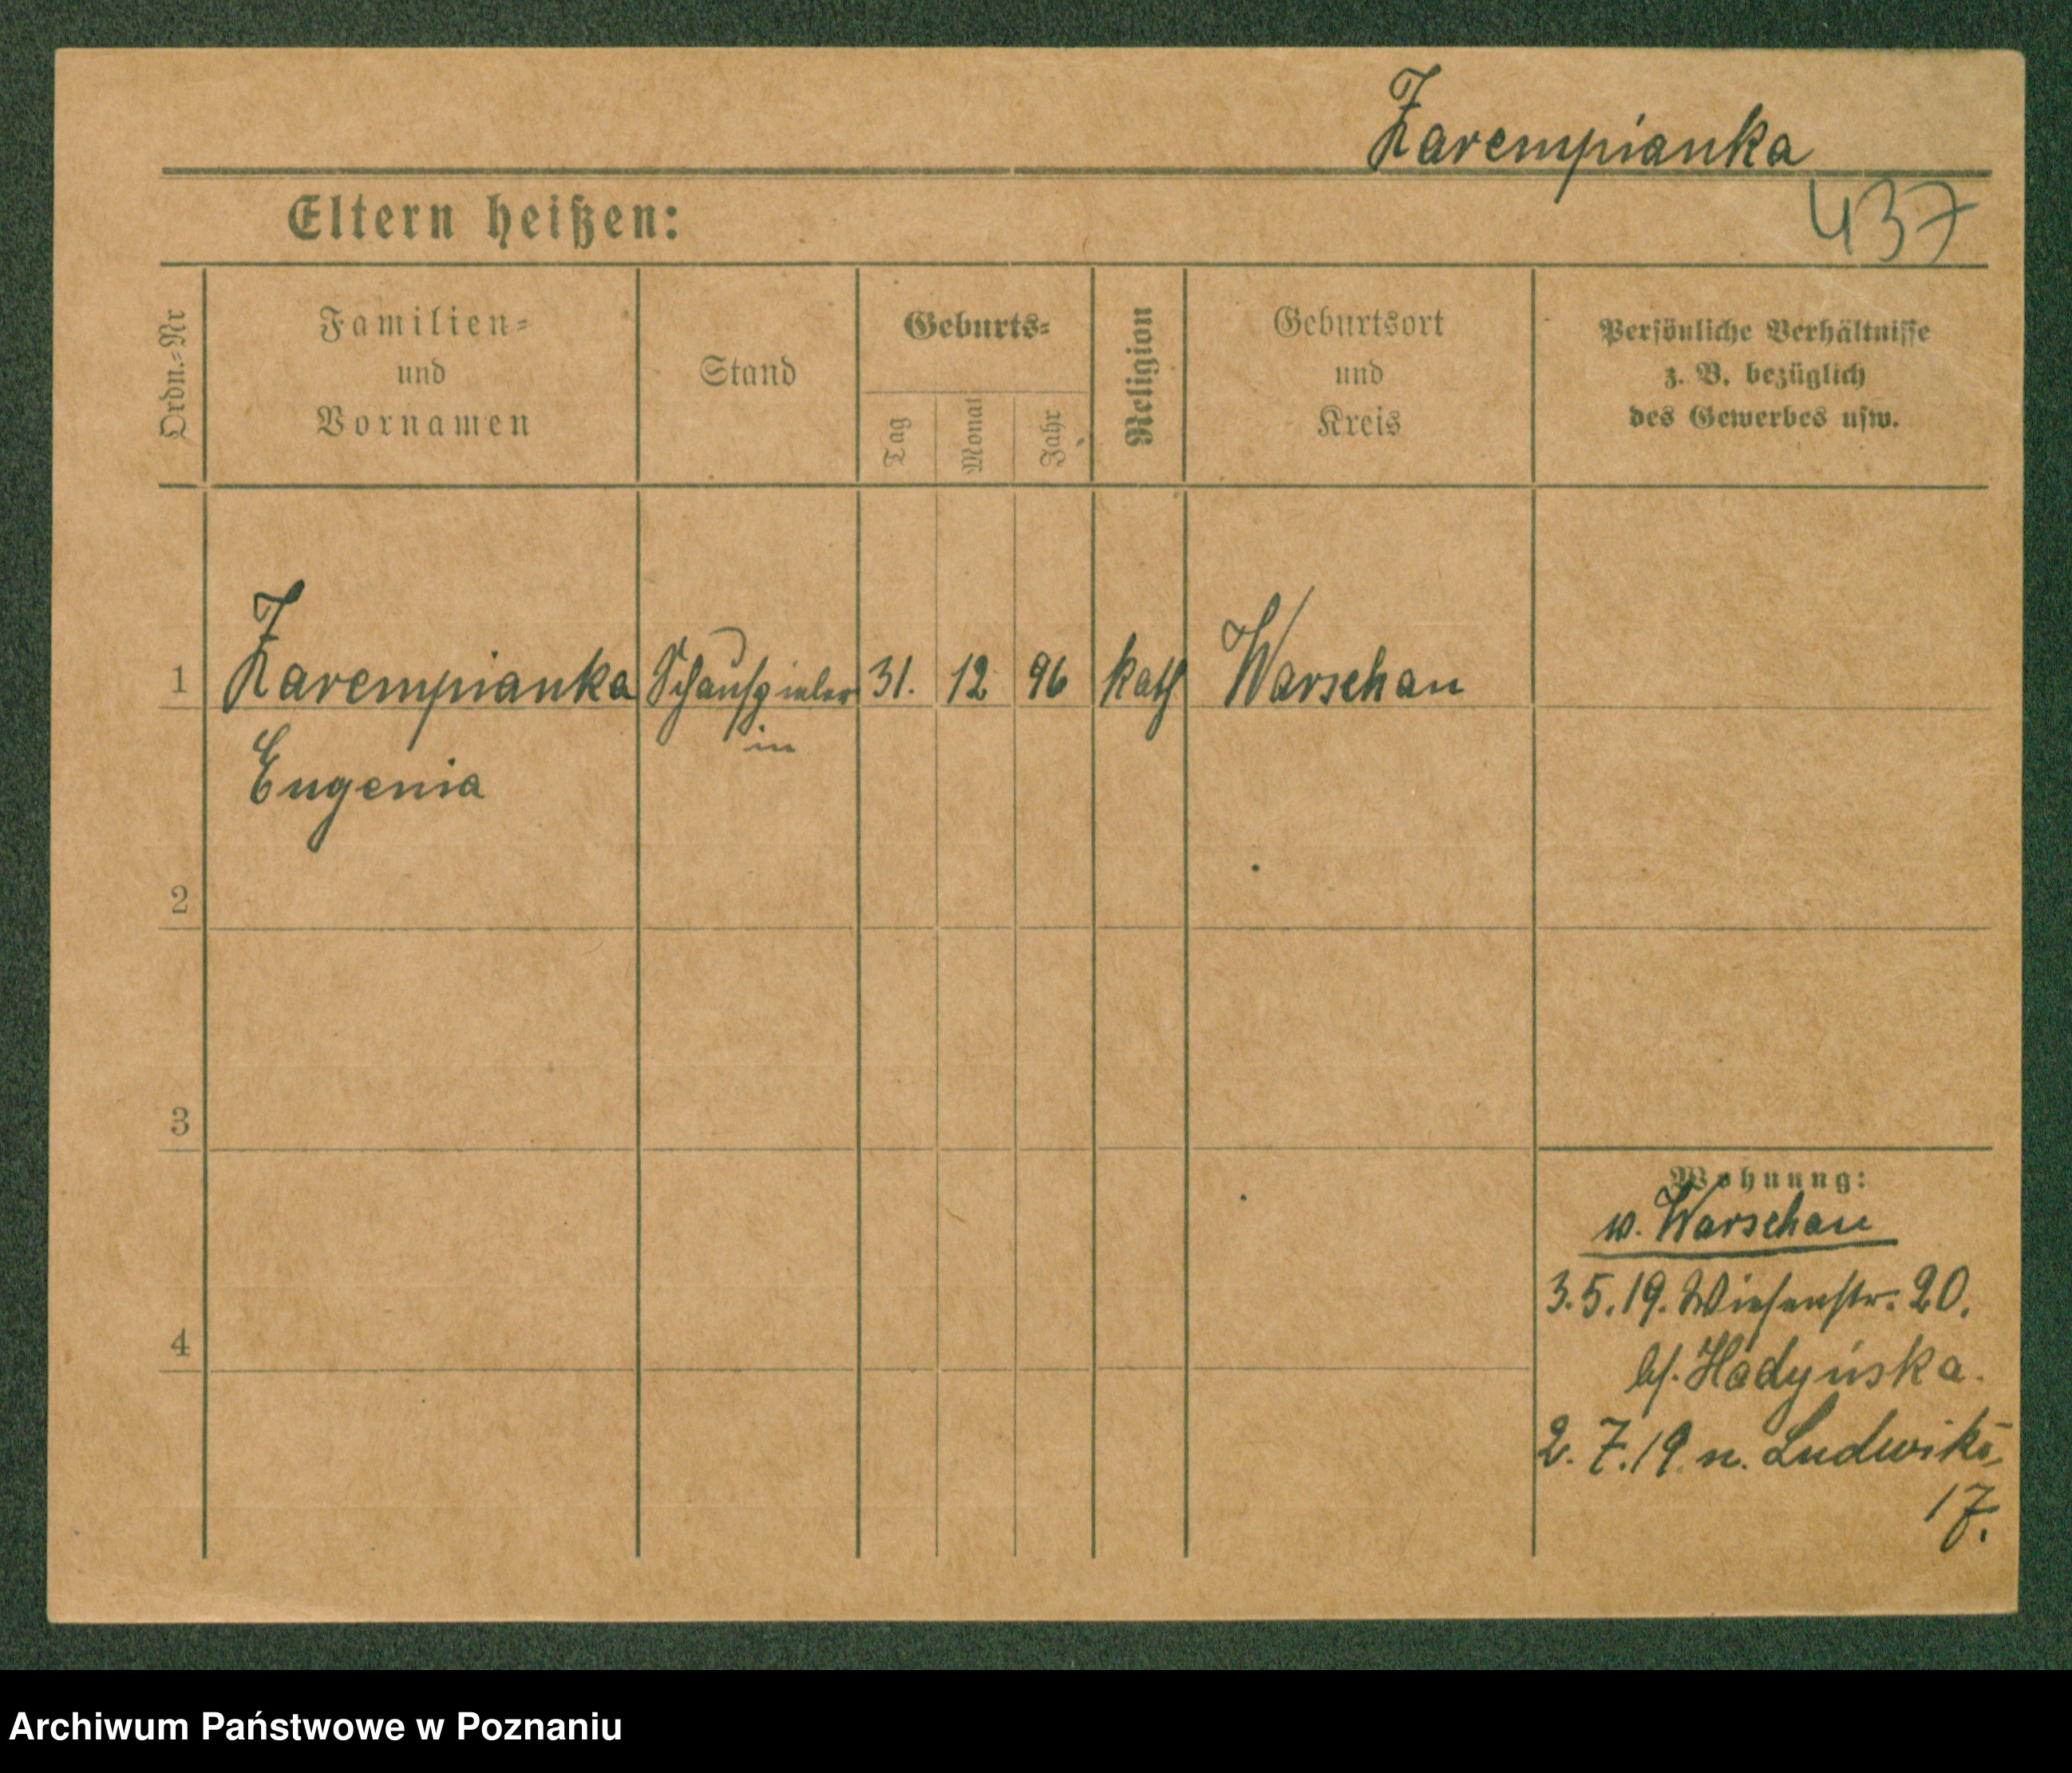 Zarempianka
437
Eltern heißen:
Ordn.=Nr
Familien=
und
Vornamen
Stand
Geburts=
Tag
Monat
Jahr
Religion
Geburtsort
und
Kreis
Persönliche Verhältnisse
z. B. bezüglich
des Gewerbes usw.
1 Zarempianka Schauspieler 31. 12 96 kath Warschau
in
Eugenia
2
3
4
Wohnung:
v. Warschau
3.5.19. Wiesenstr. 20.
bei Hadyńska.
2. 7.19 n. Ludwik
17.
Archiwum Państwowe w Poznaniu